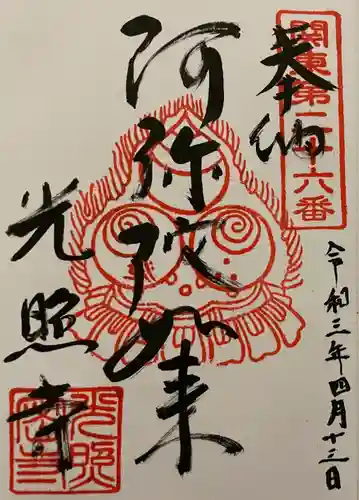 関東第二十六番
奉納
令和三年四月十三日
阿弥陀如来
光照寺